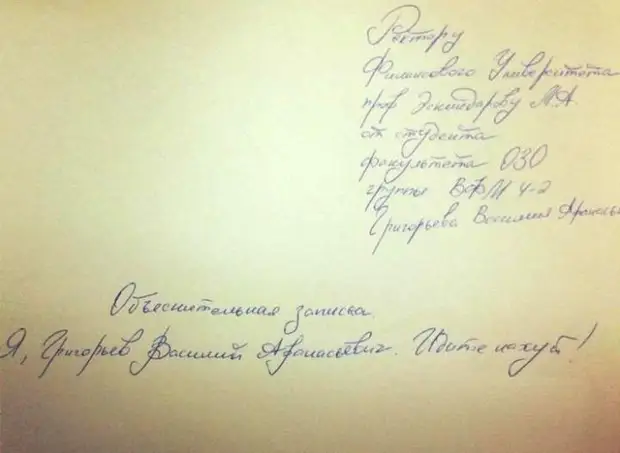 Ректору
Финансового Университета
проф Эскиндарову М.А.
от студента
факультета ОЗО
группы ВФМ 4-2
Григорьева Василия Афанасье
Объеснительная записка.
Я, Григорьев Василий Афанасьевич. Идите нахуй!